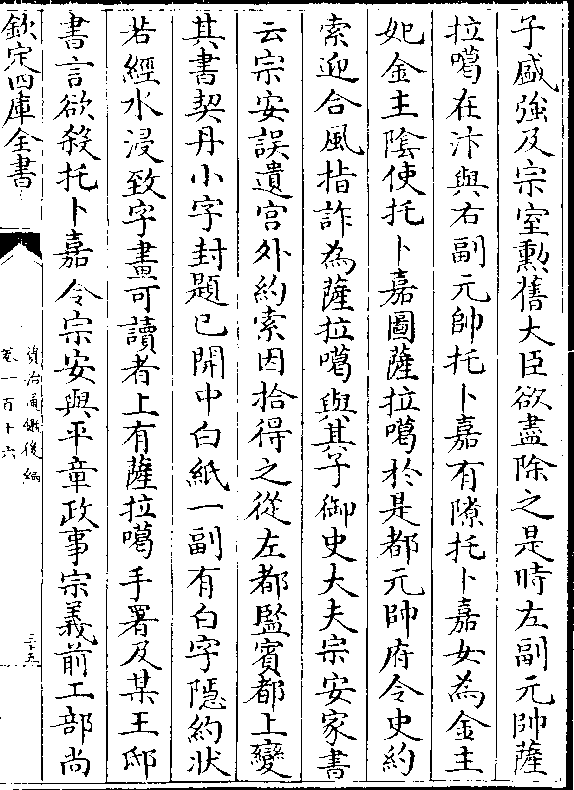 子盛強及宗室勲舊大臣欲盡除之是時左副元帥薩
拉噶在汴與右副元帥托卜嘉有隙托卜嘉女為金主
妃金主陰使托卜嘉圖薩拉噶於是都元帥府令史約
索迎合風指詐為薩拉噶與其子御史大夫宗安家書
云宗安誤遺宫外約索因拾得之從左都監賓都上變
其書契丹小字封題已開中白紙一副有白字隠約狀
若經水浸致字畫可讀者上有薩拉噶手署及某王邸
書言欲殺托卜嘉令宗安與平章政事宗義前工部尚
欽定四庫全書
資治通鑑後編
卷一百十六
三十五